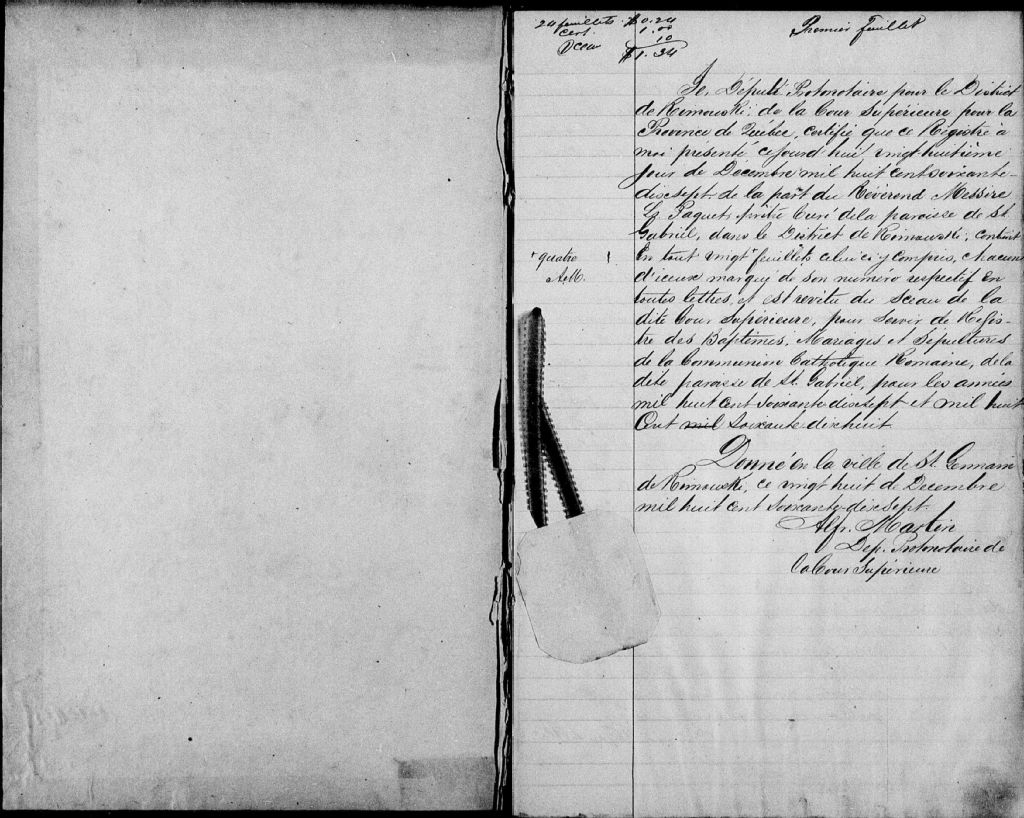 24 feuillets $0.24
Cert. 1.00
Sceau 10
$1.34
Premier feuillet
Je, Député Protonotaire pour le District
de Rimouski, de la Cour Supérieure pour la
Province de Québec, certifie que ce Régistre à
moi présenté cejourd'hui vingt huitième
jour de Décembre mil huit cent soixante-
dixsept de la part du Révérend Messire
Paquet, prêtre Curé de la paroisse de St
Gabriel, dans le District de Rimouski, contient
+ quatre
A.M.
en tout vingt + feuillets celui ci y compris, chacun
d'iceux marqué de son numéro respectif en
toutes lettres, et est revêtu du Sceau de la
dite Cour Supérieure, pour servir de Régis-
tre des Baptêmes, Mariages et Sépultures
de la Communion Catholique Romaine, de la
dite paroisse de St. Gabriel, pour les années
mil huit cent soixante dixsept et mil huit
Cent mil soixante dixhuit.
Donné en la ville de St. Germain
de Rimouski, ce vingt huit de Decembre
mil huit cent soixante-dixsept.
Alfr. Martin
Dep. Protonotaire de
la Cour Supérieure